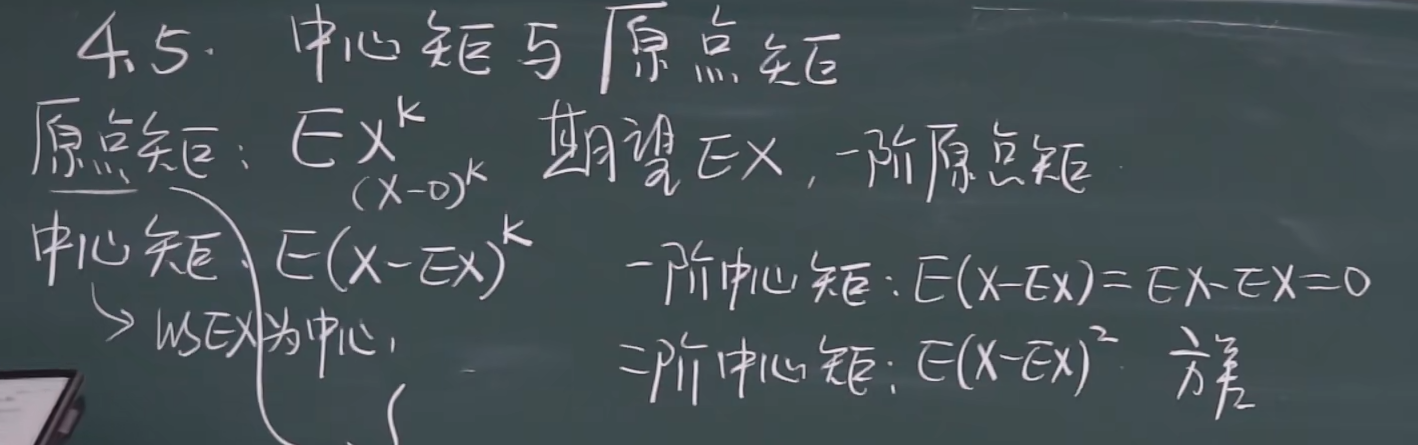 4.5. 中心矩与原点矩
原点矩: EX^k 期望EX, 一阶原点矩
(X-0)^k
中心矩、E(X-EX)^k
一阶中心矩: E(X-EX)=EX-EX=0
→ 以EX为中心,
二阶中心矩: E(X-EX)^2 方差